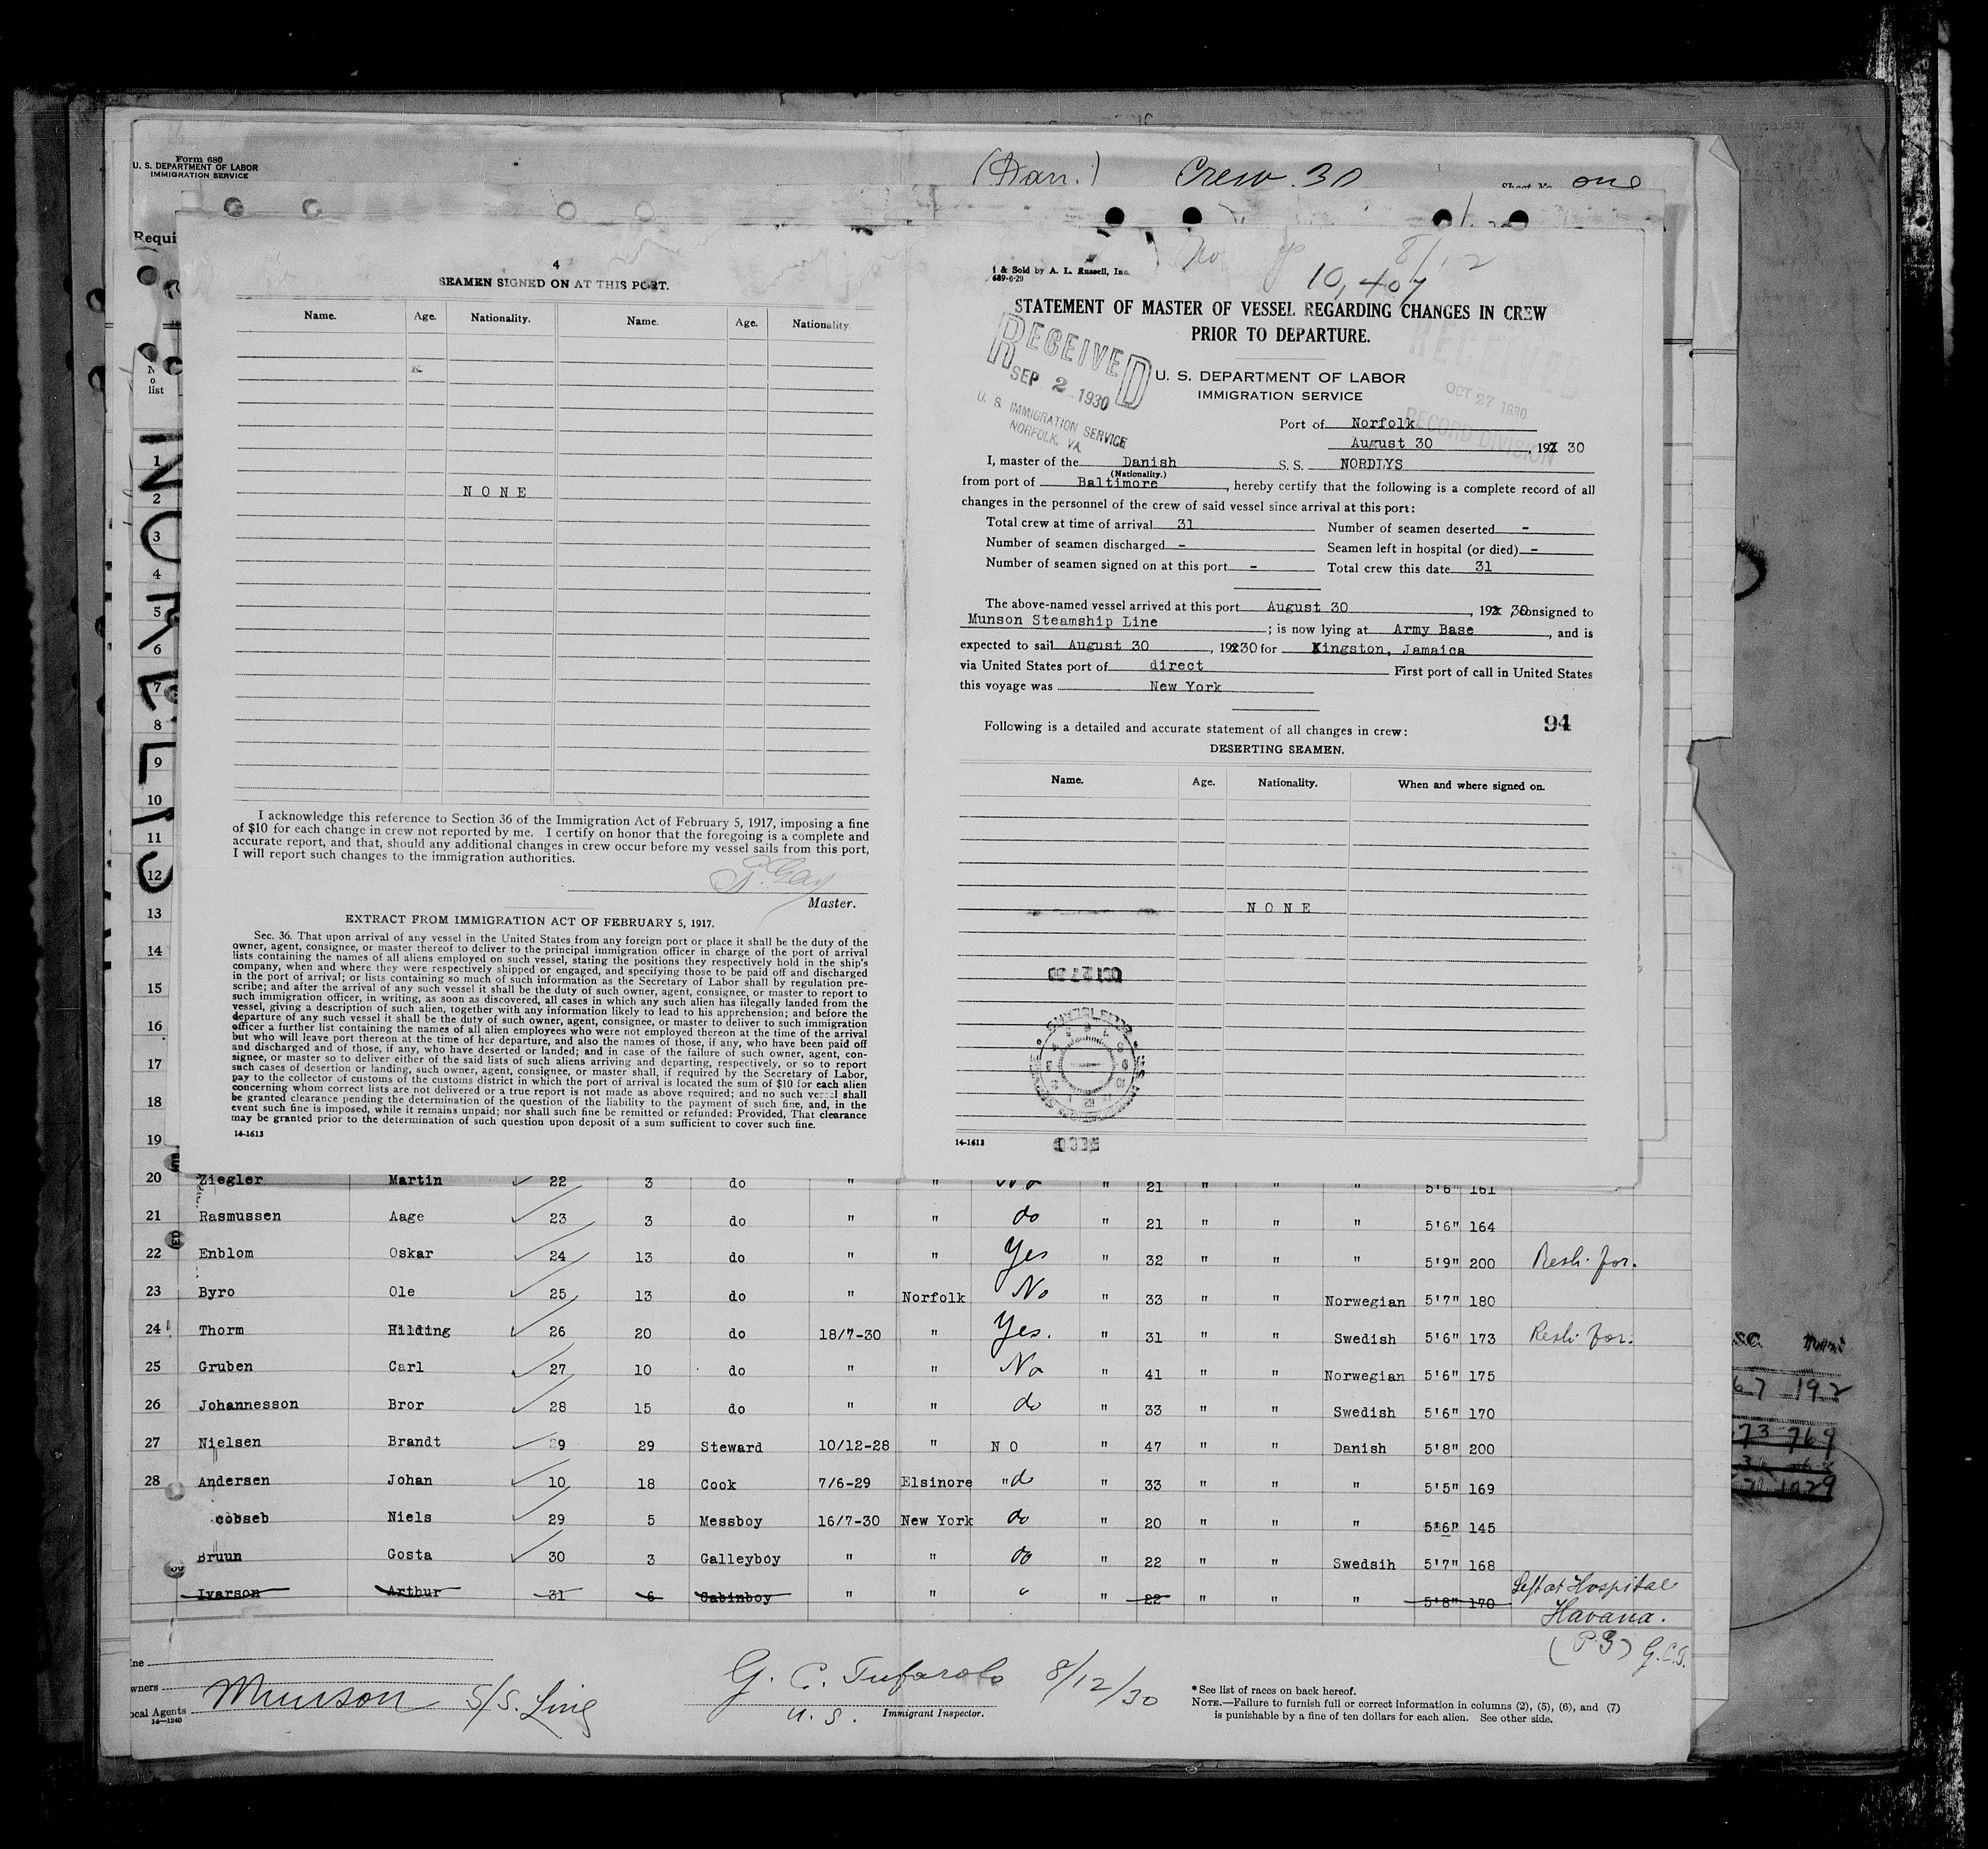 Form 680
U. S. DEPARTMENT OF LABOR
IMMIGRATION SERVICE
(Dan.) Crew 30 Sheet No. one
Requi
list
4
SEAMEN SIGNED ON AT THIS PORT.
Name. Age. Nationality. Name. Age. Nationality.
NONE
I acknowledge this reference to Section 36 of the Immigration Act of February 5, 1917, imposing a fine
of $10 for each change in crew not reported by me. I certify on honor that the foregoing is a complete and
accurate report, and that, should any additional changes in crew occur before my vessel sails from this port,
I will report such changes to the immigration authorities.
Master.
EXTRACT FROM IMMIGRATION ACT OF FEBRUARY 5, 1917.
Sec. 36. That upon arrival of any vessel in the United States from any foreign port or place it shall be the duty of the
owner, agent, consignee, or master thereof to deliver to the principal immigration officer in charge of the port of arrival
lists containing the names of all aliens employed on such vessel, stating the positions they respectively hold in the ship's
company, when and where they were respectively shipped or engaged, and specifying those to be paid off and discharged
in the port of arrival; or lists containing so much of such information as the Secretary of Labor shall by regulation pre-
scribe; and after the arrival of any such vessel it shall be the duty of such owner, agent, consignee, or master to report to
such immigration officer, in writing, as soon as discovered, all cases in which any such alien has illegally landed from the
vessel, giving a description of such alien, together with any information likely to lead to his apprehension; and before the
departure of any such vessel it shall be the duty of such owner, agent, consignee, or master to deliver to such immigration
officer a further list containing the names of all alien employees who were not employed thereon at the time of the arrival
but who will leave port thereon at the time of her departure, and also the names of those, if any, who have been paid off
and discharged and of those, if any, who have deserted or landed; and in case of the failure of such owner, agent, con-
signee, or master so to deliver either of the said lists of such aliens arriving and departing, respectively, or so to report
such cases of desertion or landing, such owner, agent, consignee, or master shall, if required by the Secretary of Labor,
pay to the collector of customs of the customs district in which the port of arrival is located the sum of $10 for each alien
concerning whom correct lists are not delivered or a true report is not made as above required; and no such vessel shall
be granted clearance pending the determination of the question of the liability to the payment of such fine, and, in the
event such fine is imposed, while it remains unpaid; nor shall such fine be remitted or refunded: Provided, That clearance
may be granted prior to the determination of such question upon deposit of a sum sufficient to cover such fine.
14-1613
& Sold by A. L. Russell, Inc.
689-6-29
8/12
10,407
STATEMENT OF MASTER OF VESSEL REGARDING CHANGES IN CREW
PRIOR TO DEPARTURE.
RECEIVED
SEP 2 1930
U. S. IMMIGRATION SERVICE
NORFOLK, VA
RECEIVED
OCT 27 1930
RECORD DIVISION
U. S. DEPARTMENT OF LABOR
IMMIGRATION SERVICE
Port of Norfolk
August 30, 192 30
I, master of the Danish S. S. NORDLYS
(Nationality.)
from port of Baltimore, hereby certify that the following is a complete record of all
changes in the personnel of the crew of said vessel since arrival at this port:
Total crew at time of arrival 31 Number of seamen deserted -
Number of seamen discharged - Seamen left in hospital (or died) -
Number of seamen signed on at this port - Total crew this date 31
The above-named vessel arrived at this port August 30, 192 30, consigned to
Munson Steamship Line; is now lying at Army Base, and is
expected to sail August 30, 192 30 for Kingston, Jamaica
via United States port of direct First port of call in United States
this voyage was New York
Following is a detailed and accurate statement of all changes in crew: 94
DESERTING SEAMEN.
Name. Age. Nationality. When and where signed on.
NONE
14-1613
1
2
3
4
5
6
7
8
9
10
11
12
13
14
15
16
17
18
19
20 Ziegler Martin 22 3 do " " No " 21 " " " 5'6" 161
21 Rasmussen Aage 23 3 do " " do " 21 " " " 5'6" 164
22 Enblom Oskar 24 13 do " " Yes " 32 " " " 5'9" 200
23 Byro Ole 25 13 do " Norfolk No " 33 " " Norwegian 5'7" 180
24 Thorm Hilding 26 20 do 18/7-30 " Yes. " 31 " " Swedish 5'6" 173
25 Gruben Carl 27 10 do " " No " 41 " " Norwegian 5'6" 175
26 Johannesson Bror 28 15 do " " do " 33 " " Swedish 5'6" 170
27 Nielsen Brandt 9 29 Steward 10/12-28 " NO " 47 " " Danish 5'8" 200
28 Andersen Johan 10 18 Cook 7/6-29 Elsinore "do " 33 " " " 5'5" 169
cobseb Niels 29 5 Messboy 16/7-30 New York do " 20 " " " 5'6" 145
Bruun Gosta 30 3 Galleyboy " " do " 22 " " Swedsih 5'7" 168
Ivarson Arthur 31 6 Cabinboy " " " " 22 " " " 5'8" 170 Left at Hospital
Havana.
G.C.T.
wners
Munson S/S. Line
ocal Agents
14-1240
G. C. Tufarolo 8/12/30
U. S. Immigrant Inspector.
*See list of races on back hereof.
NOTE.—Failure to furnish full or correct information in columns (2), (5), (6), and (7)
is punishable by a fine of ten dollars for each alien. See other side.
67 192
73 769
1029